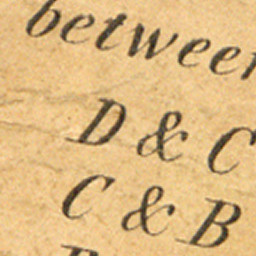 between
D & C
C & B